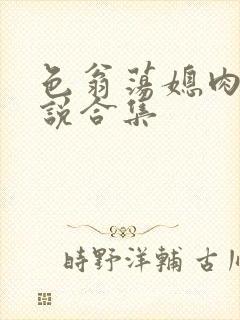 色翁荡媳肉
説合集
時野洋輔 古川